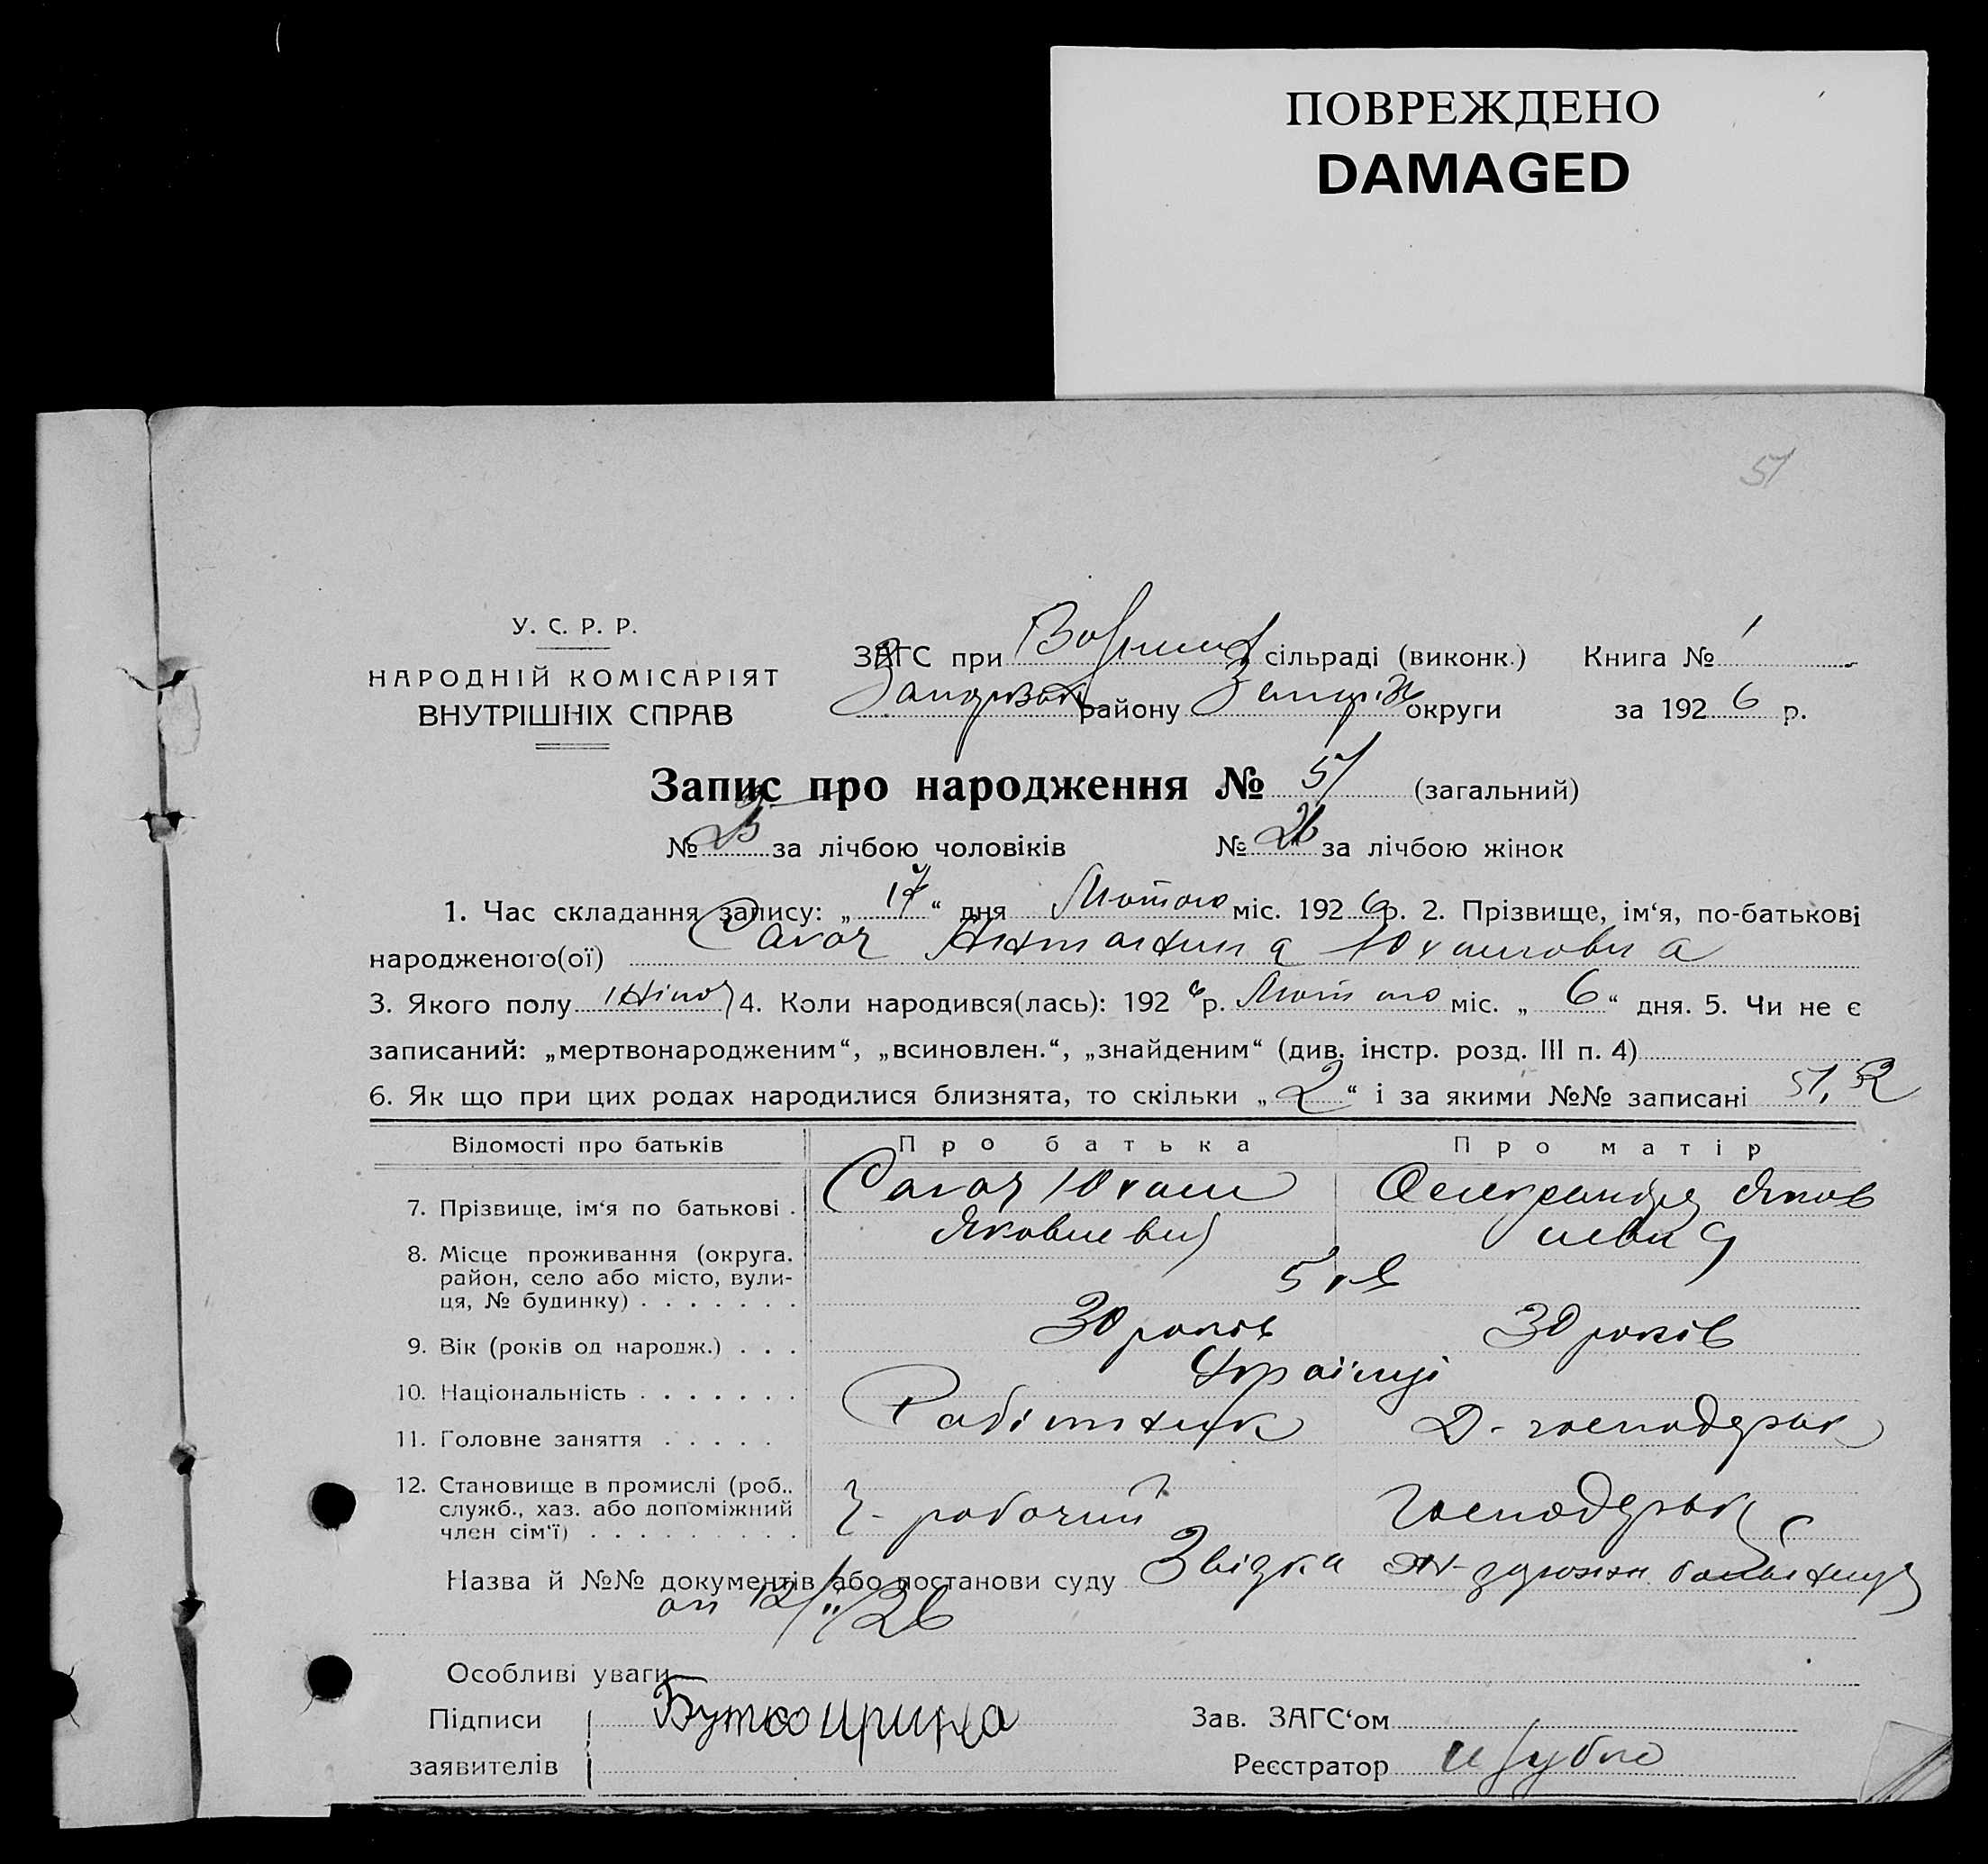 ПОВРЕЖДЕНО
DAMAGED
51
У. С. Р. Р.
НАРОДНІЙ КОМІСАРІЯТ
ВНУТРІШНІХ СПРАВ
ЗАГС при сільраді (виконк.) Книга № 1
району округи за 1926 р.
Запис про народження № 51 (загальний)
№ 25 за лічбою чоловіків № 26 за лічбою жінок
1. Час складання запису: „ 17 “ дня Лютого міс. 1926 р. 2. Прізвище, ім‘я, по-батькові
народженого(ої) Сагач Антонина Юхимовна
3. Якого полу Жіноч 4. Коли народився(лась): 1926 р. Лютого міс. „ 6 “ дня. 5. Чи не є
записаний: „мертвонародженим“, „всиновлен.“, „знайденим“ (див. інстр. розд. III п. 4)
6. Як що при цих родах народилися близнята, то скільки „ 2 “ і за якими №№ записані 51, 52
Відомості про батьків Про батька Про матір
7. Прізвище, ім‘я по батькові . Сагач Юхим Олександра Яков
Яковлевич левна
8. Місце проживання (округа,
район, село або місто, вули-
ця, № будинку) . . . . . . .
9. Вік (років од народж.) . . . 30 років 30 років
10. Національність . . . . . . . Українці
11. Головне заняття . . . . . Робітник Д-господарок
12. Становище в промислі (роб.,
служб., хаз. або допоміжний
член сім‘ї) . . . . . . . . . Ч-робочий Господарок
Назва й №№ документів або постанови суду Звідка
от 12/II 26
Особливі уваги
Підписи Бутко Ирина Зав. ЗАГС‘ом
заявителів Реєстратор